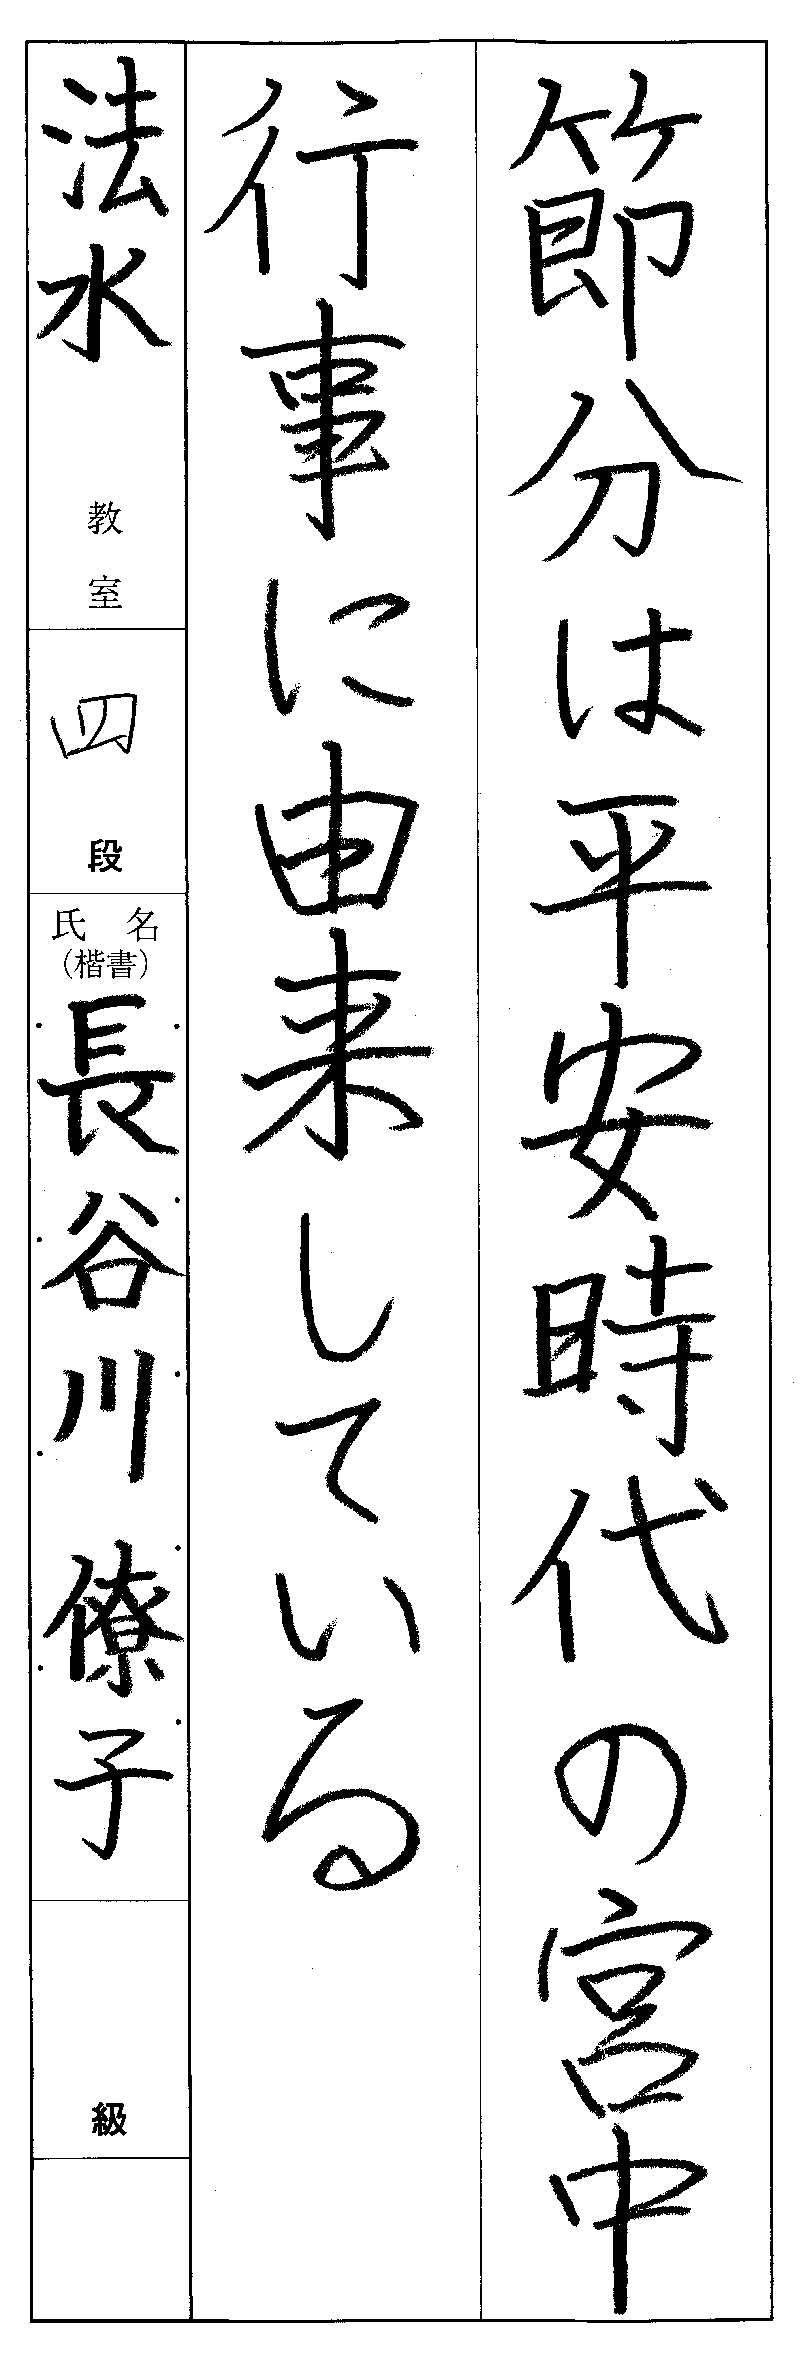 節分は平安時代の宮中
行事に由来している
法水 教室
四 段
氏名
(楷書)
長谷川 僚子
級